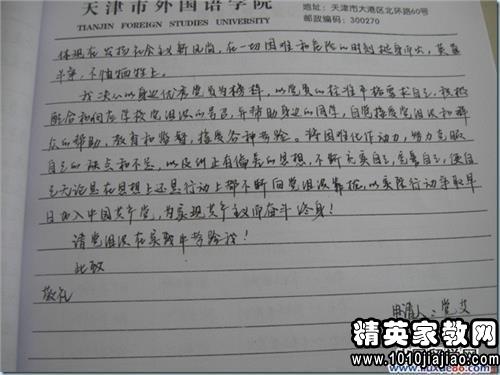 天津市外国语学院
TIANJIN FOREIGN STUDIES UNIVERSITY
地址:天津市大港区学府路60号
邮政编码:300270
体现在发扬社会主义新风尚,在一切困难和危险的时刻挺身而出,英勇
斗争,不怕牺牲上。
我决心以身边优秀党员为榜样,以党员的标准严格要求自己,积极
配合和向在学校党组织的号召,并帮助身边的同学,自觉接受党组织和群
众的帮助、教育和监督,接受各种考验。将困难化作动力,努力克服
自己的缺点和不足,以及纠正有偏差的思想,不断充实自己,完善自己,使自
己无论是在思想上还是行动上都不断向党组织靠拢,以实际行动争取早
日加入中国共产党,为实现共产主义而奋斗终身!
请党组织在实践中考验我!
此致
敬礼
申请人:
精英家教网
www.1010jiajiao.com